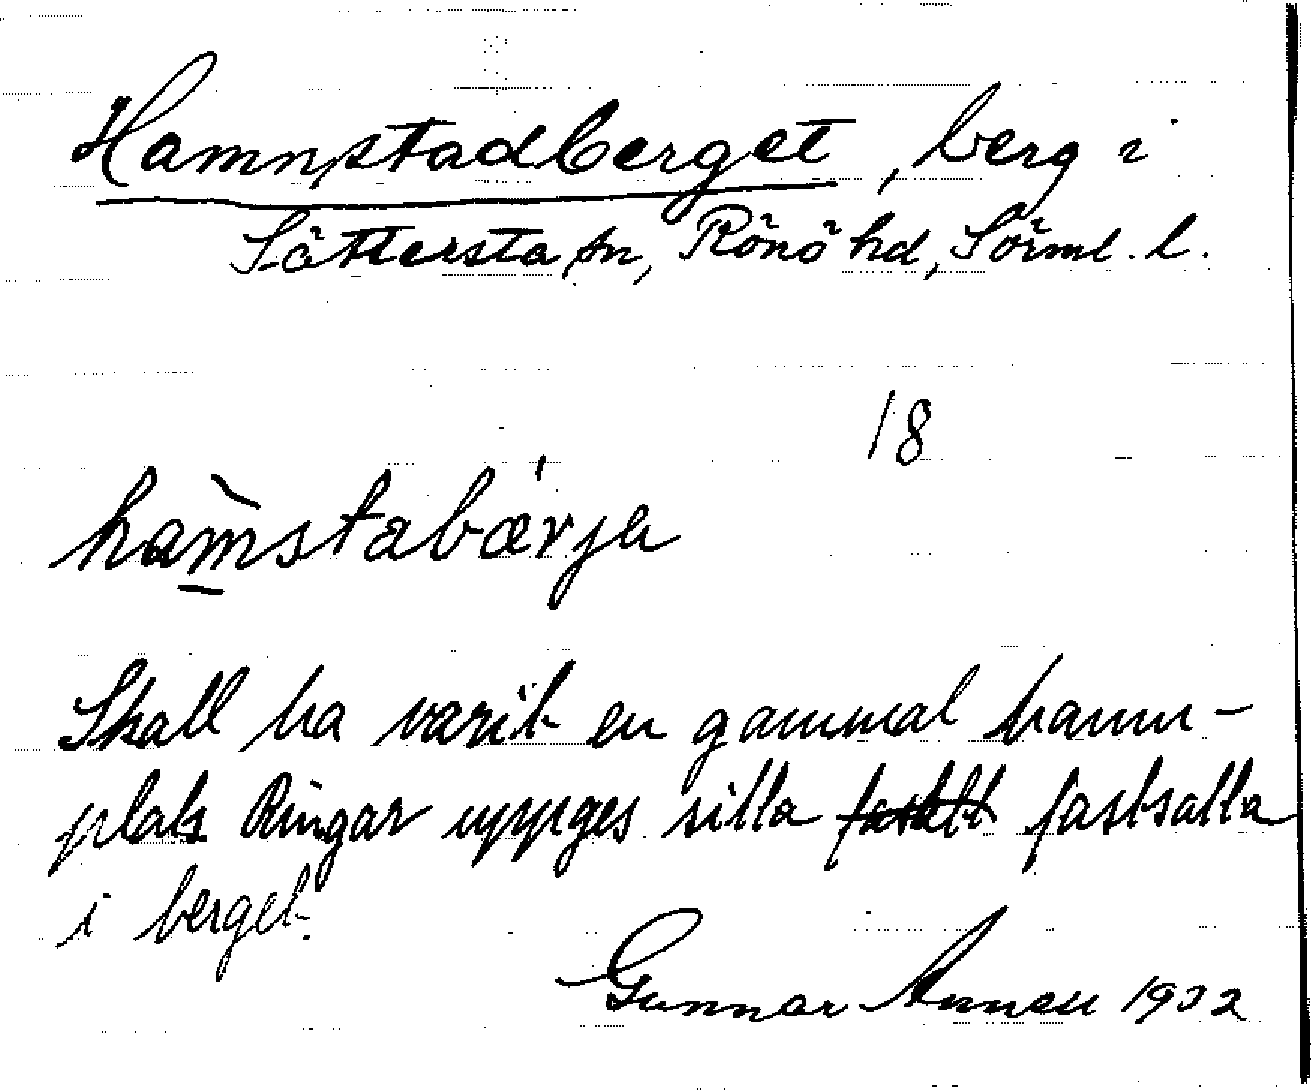 Hamnstadberget, berg i
Sättersta sn, Rönö hd, Sörml. l.
18
ham̀stabær'ja
Skall ha varit en gammal hamn-
plats Ringar uppges sitta fastsatta
i berget.
Gunnar 1932